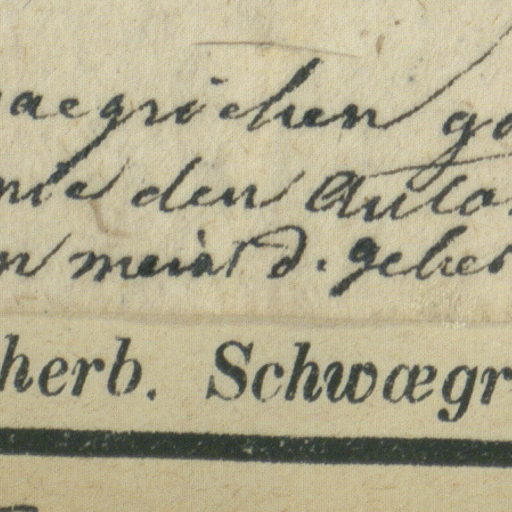 aegrichen ge
den Auto
n meint d. geber
herb. Schwægr